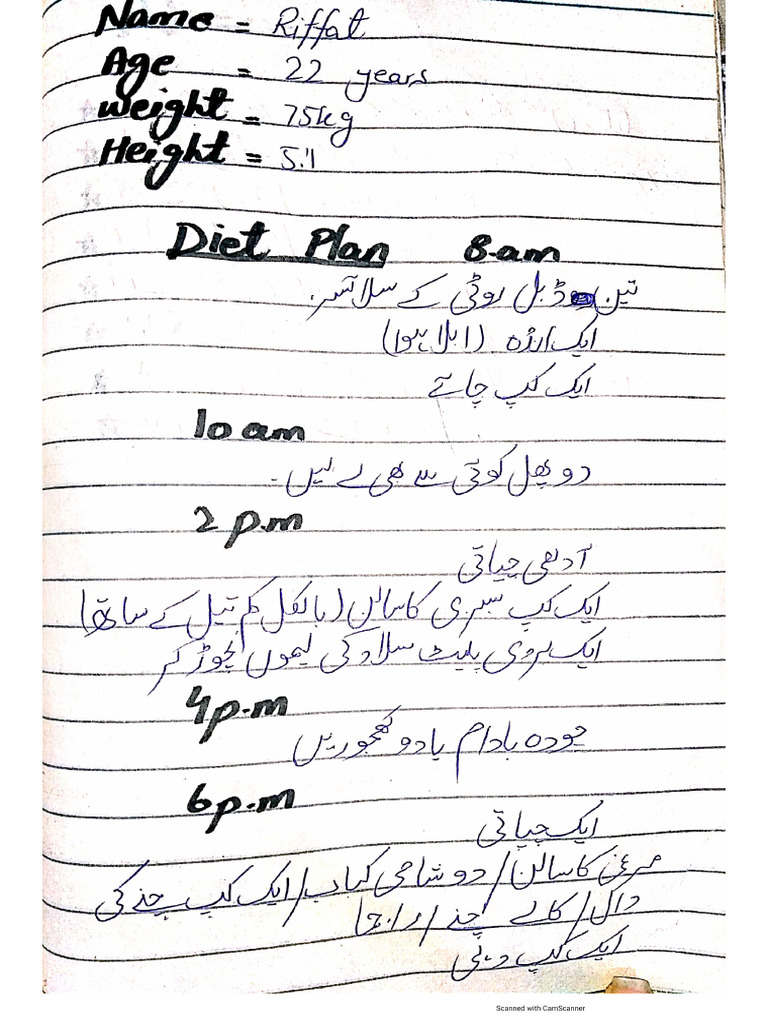 Name = Riffat
Age = 22 years
Weight = 75kg
Height = 5.1
Diet Plan 8.am
تین ڈبل روٹی کے سلائس.
ایک انڈہ (ابلا ہوا)
ایک کپ چائے
10 am
دو پھل کوئی سے بھی لے لیں۔
2 p.m
آدھی چپاتی
ایک کپ سبزی کا سالن (بالکل کم تیل کے ساتھ)
ایک بڑی پلیٹ سلاد کی لیموں نچوڑ کر
4p.m
چودہ بادام یا دو کھجوریں
6p.m
ایک چپاتی
مرغی کا سالن / دو شامی کباب / ایک کپ چنے کی
دال / کالے چنے /
ایک کپ دہی
Scanned with CamScanner